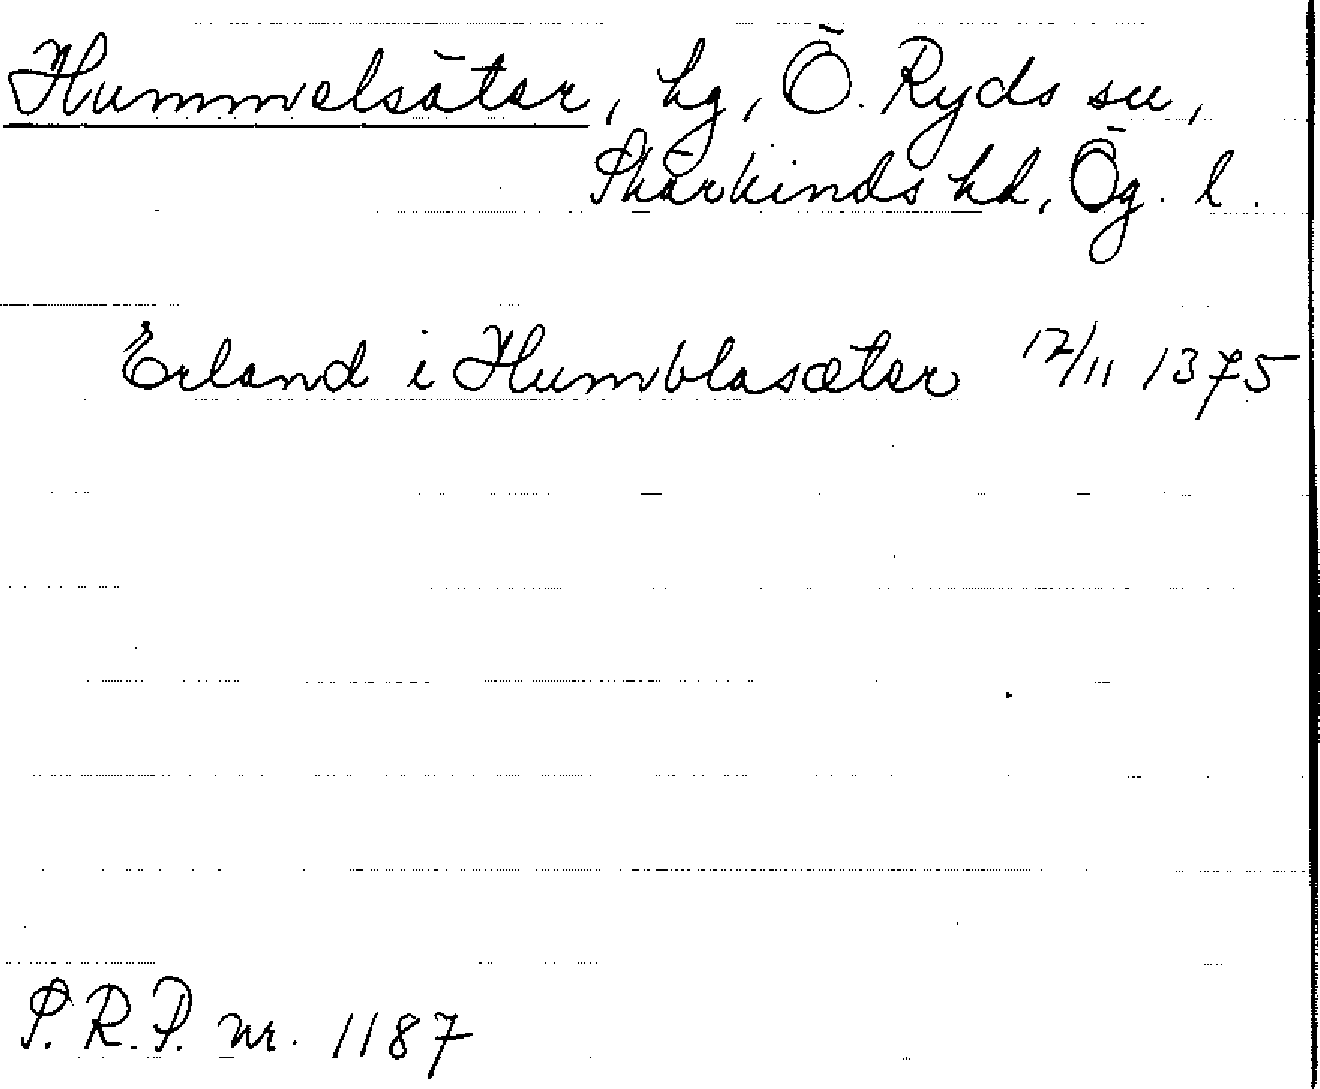 Hummelsäter, hg, Ö. Ryds sn,
Skärkinds hd, Ög. l.
Erland i Humblasæter 12/11 1375
S.R.P. nr. 1187